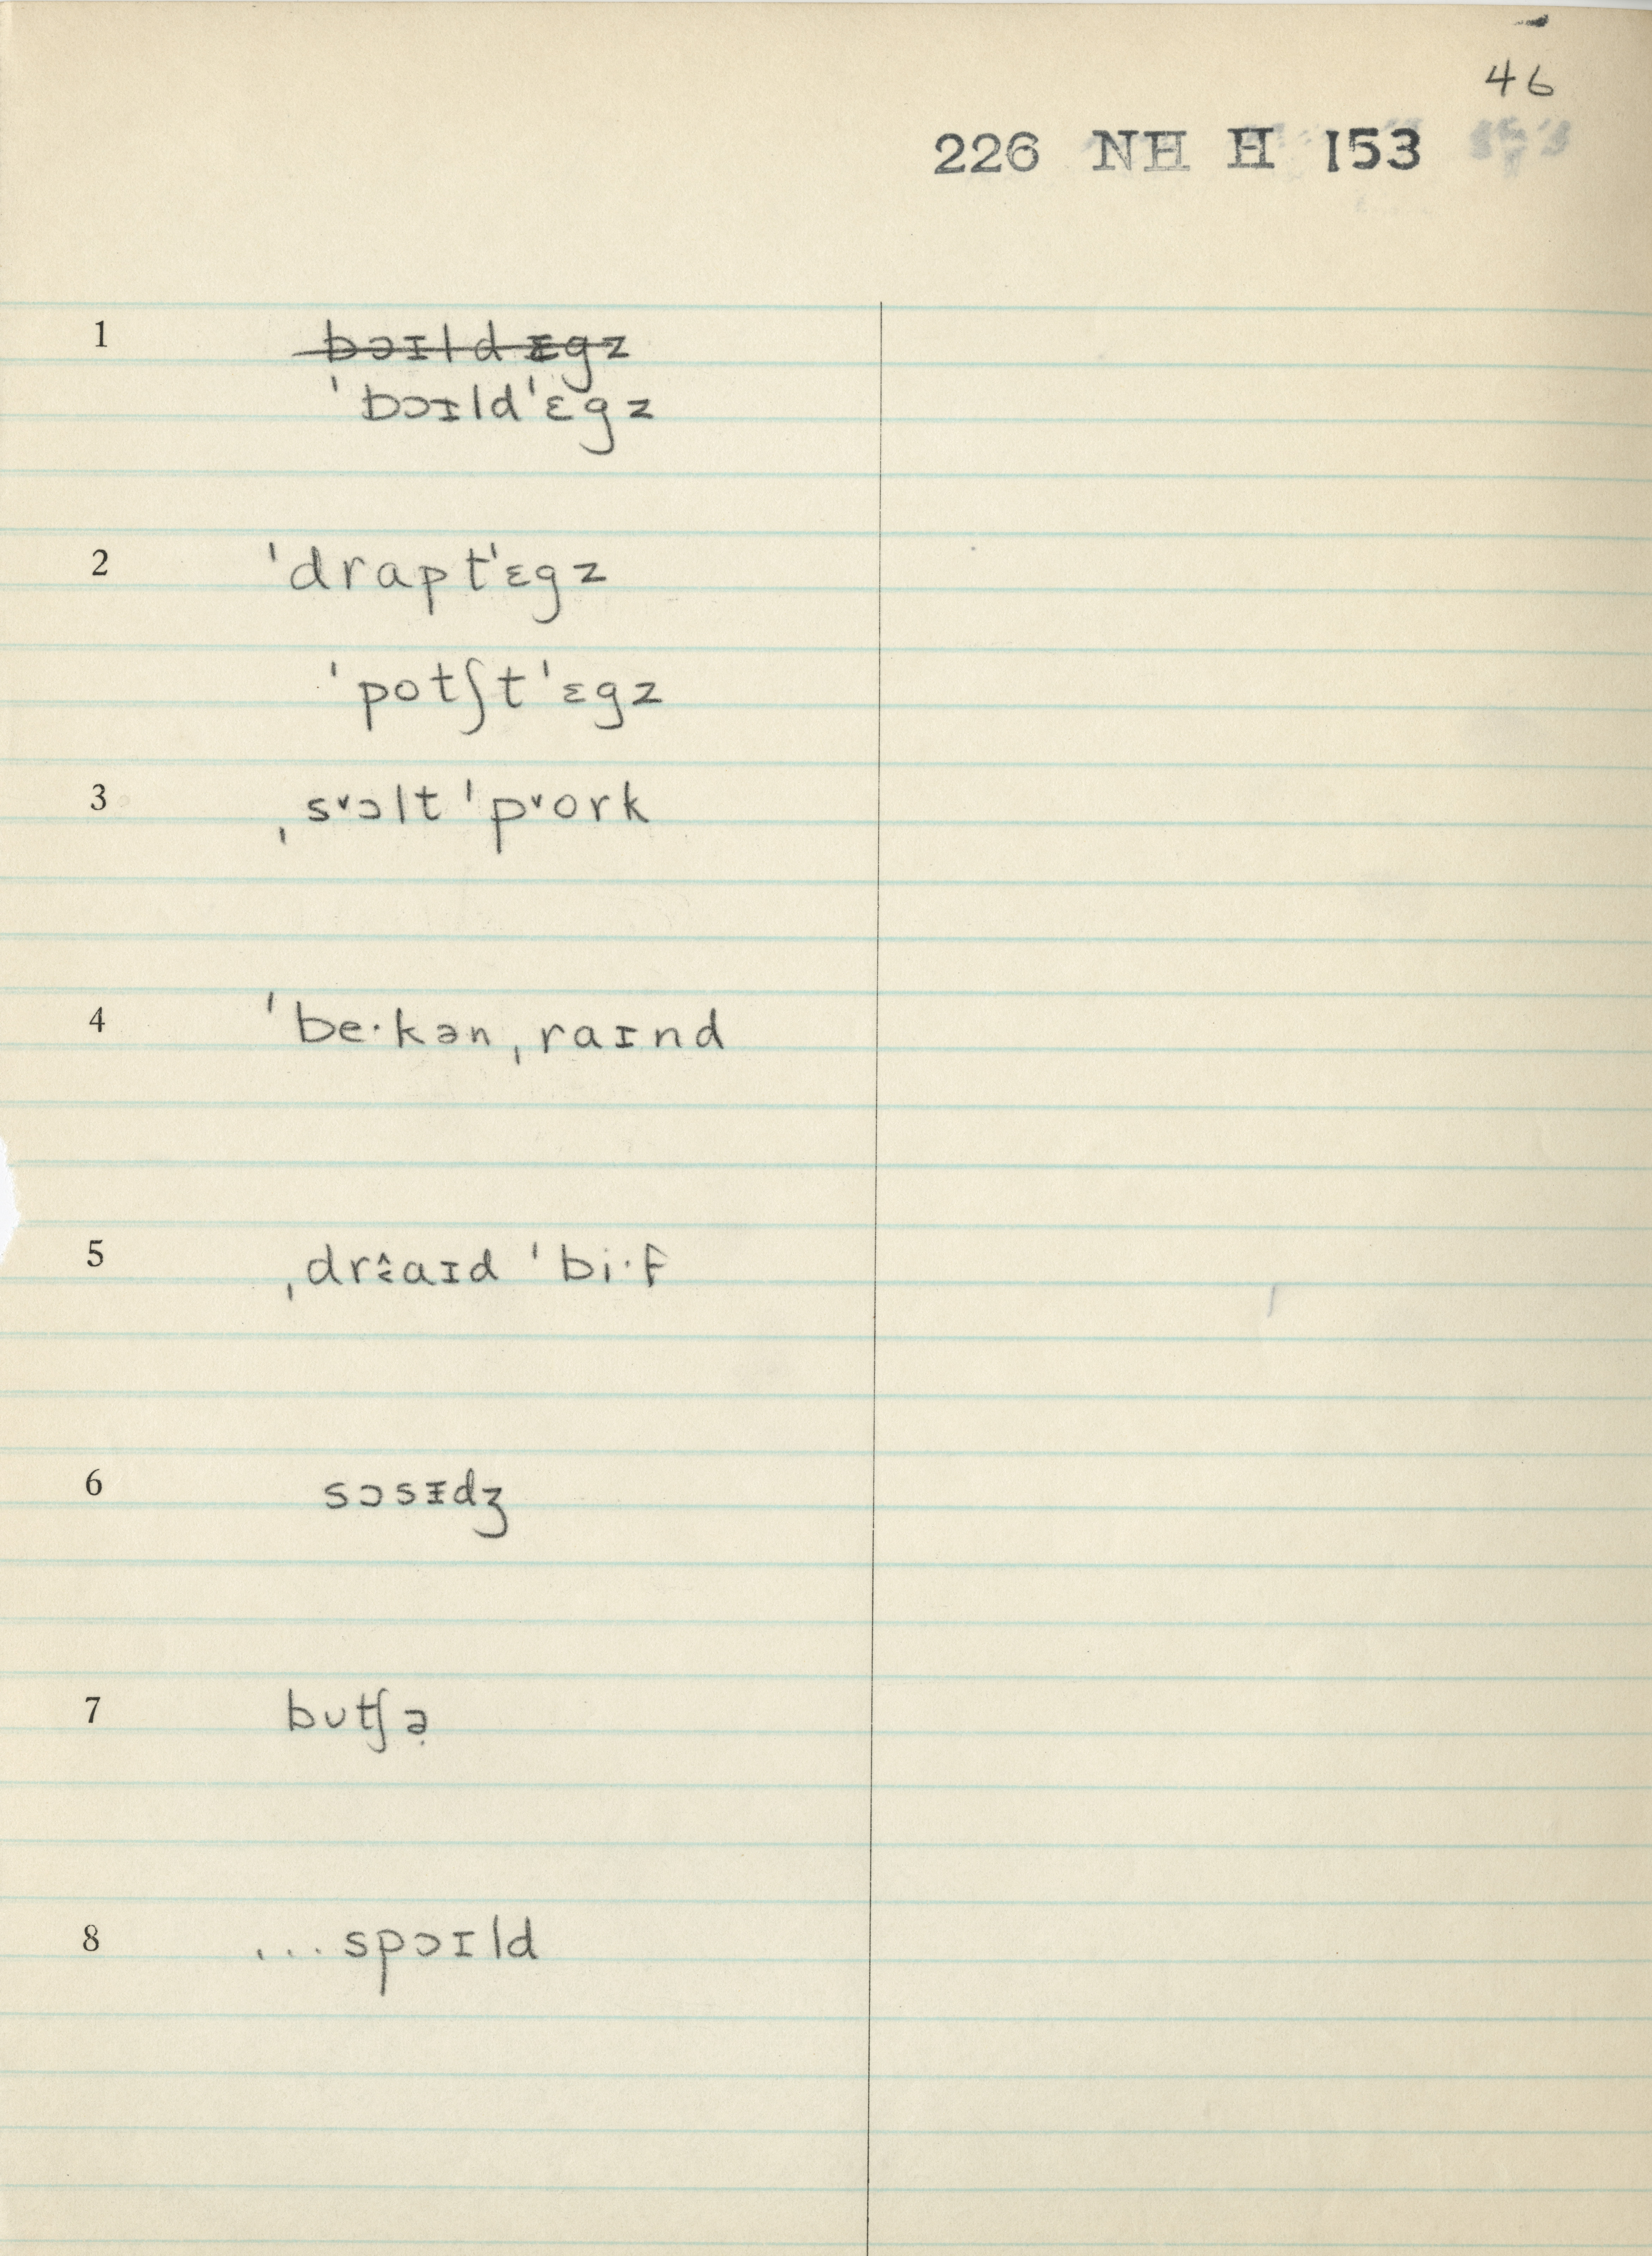 46
226 NH H 153
1 bɔɪld ɛgz
ˈbɔɪldˈɛgz
2 ˈdraptˈɛgz
ˈpotʃtˈɛgz
3 ˌs˅ɔlt ˈp˅ork
4 ˈbe·kənˌraɪnd
5 ˌdrɛ̂aɪd ˈbi·f
6 sɔsᵻdʒ
7 bʊtʃə̣
8 ... spɔɪld